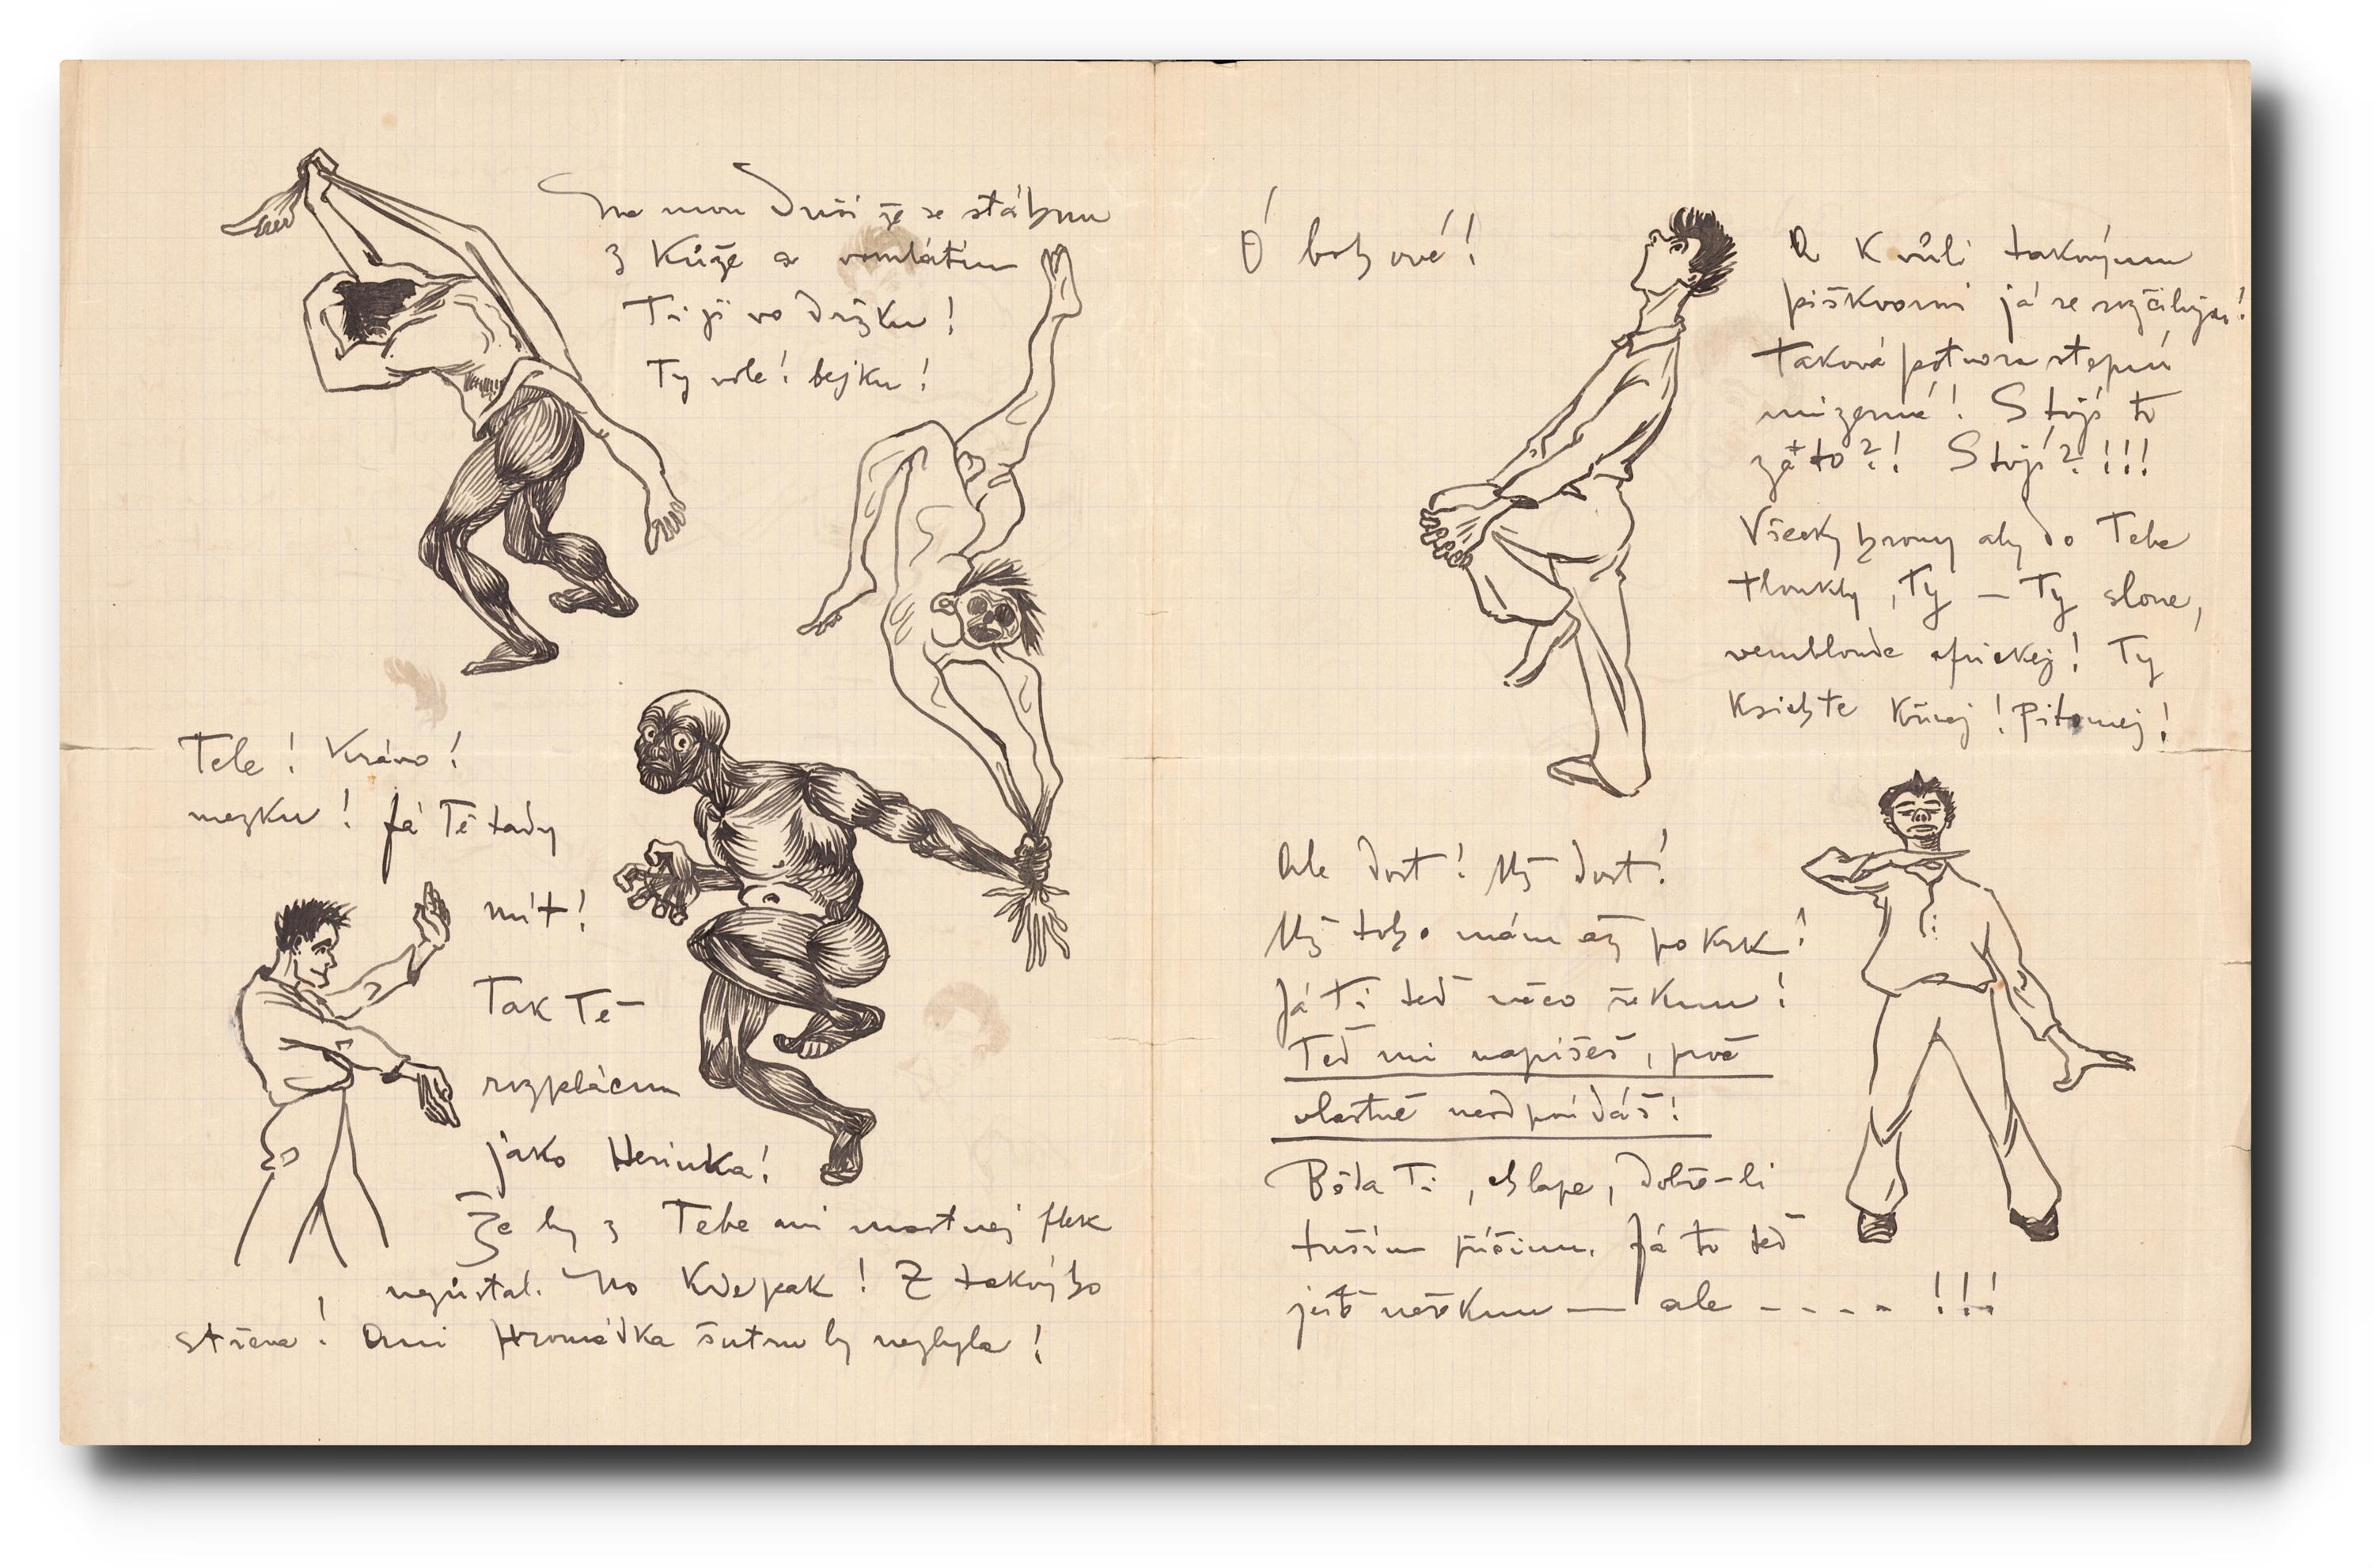 Na mou duši že se stáhnu
z Kůže a vomlátím
Ti ji vo držku!
Ty vole! bejku!
Tele! Krávo!
mezku! Já Tě tady
mít!
Tak Tě
rozplácnu
jako Herinka!
Že by z Tebe ani mastnej flek
nezůstal. No Kdepak! Z takvýho
střeva! Ani Hromádka šutru by nezbyla!
Ó bohové!
A Kvůli takovýmu
piškvorni já se rozčiluju!
Taková potvora stepní
mizerná! Stojí to
zato?! Stojí?!!!
Všecky hromy aby do Tebe
tloukly, Ty – Ty slone,
vembloude africkej! Ty
Ksichte Křivej! Pitomej!
Ale dost! Už dost!
Už toho mám až po Krk!
Já Ti teď něco řeknu!
Teď mi napíšeš, proč
vlastně neodpovídáš!
Běda Ti, chlape, dobře-li
tuším příčinu. Já to teď
ještě neřeknu — ale - - - - !!!